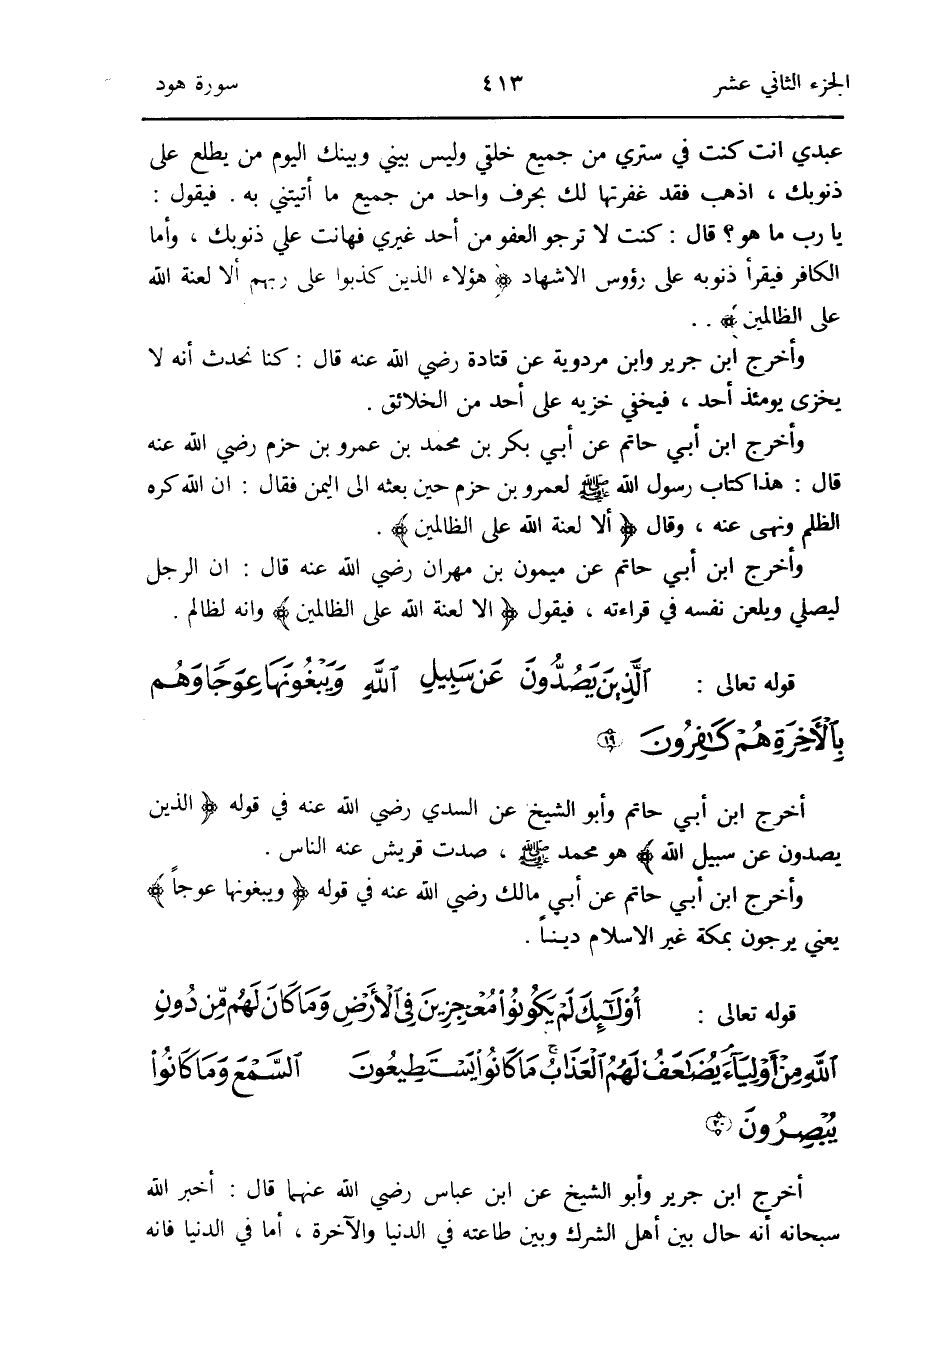 الجزء الثاني عشر ٤١٣ سورة هود
عبدي انت كنت في ستري من جميع خلقي وليس بيني وبينك اليوم من يطلع على
ذنوبك ، اذهب فقد غفرتها لك بحرف واحد من جميع ما أتيتني به . فيقول :
يا رب ما هو؟ قال : كنت لا ترجو العفو من أحد غيري فهانت علي ذنوبك ، وأما
الكافر فيقرأ ذنوبه على رؤوس الاشهاد ﴿ هؤلاء الذين كذبوا على ربهم ألا لعنة الله
على الظالمين ﴾ . .
وأخرج ابن جرير وابن مردوية عن قتادة رضي الله عنه قال : كنا نحدث أنه لا
يخزى يومئذ أحد ، فيخفي خزيه على أحد من الخلائق .
وأخرج ابن أبي حاتم عن أبي بكر بن محمد بن عمرو بن حزم رضي الله عنه
قال : هذا كتاب رسول الله ﷺ لعمرو بن حزم حين بعثه الى اليمن فقال : ان الله كره
الظلم ونهى عنه ، وقال ﴿ ألا لعنة الله على الظالمين ﴾ .
وأخرج ابن أبي حاتم عن ميمون بن مهران رضي الله عنه قال : ان الرجل
ليصلي ويلعن نفسه في قراءته ، فيقول ﴿ الا لعنة الله على الظالمين ﴾ وانه لظالم .
قوله تعالى : ٱلَّذِينَ يَصُدُّونَ عَن سَبِيلِ ٱللَّهِ وَيَبْغُونَهَا عِوَجًا وَهُم
بِٱلْأَخِرَةِ هُمْ كَـٰفِرُونَ ١٩
أخرج ابن أبي حاتم وأبو الشيخ عن السدي رضي الله عنه في قوله ﴿ الذين
يصدون عن سبيل الله ﴾ هو محمد ﷺ ، صدت قريش عنه الناس .
وأخرج ابن أبي حاتم عن أبي مالك رضي الله عنه في قوله ﴿ ويبغونها عوجاً ﴾
يعني يرجون بمكة غير الاسلام ديناً .
قوله تعالى : أُوْلَـٰٓئِكَ لَمْ يَكُونُوا۟ مُعْجِزِينَ فِى ٱلْأَرْضِ وَمَا كَانَ لَهُم مِّن دُونِ
ٱللَّهِ مِنْ أَوْلِيَآءَ ۘ يُضَـٰعَفُ لَهُمُ ٱلْعَذَابُ ۚ مَا كَانُوا۟ يَسْتَطِيعُونَ ٱلسَّمْعَ وَمَا كَانُوا۟
يُبْصِرُونَ ٢٠
أخرج ابن جرير وأبو الشيخ عن ابن عباس رضي الله عنهما قال : أخبر الله
سبحانه أنه حال بين أهل الشرك وبين طاعته في الدنيا والآخرة ، أما في الدنيا فانه